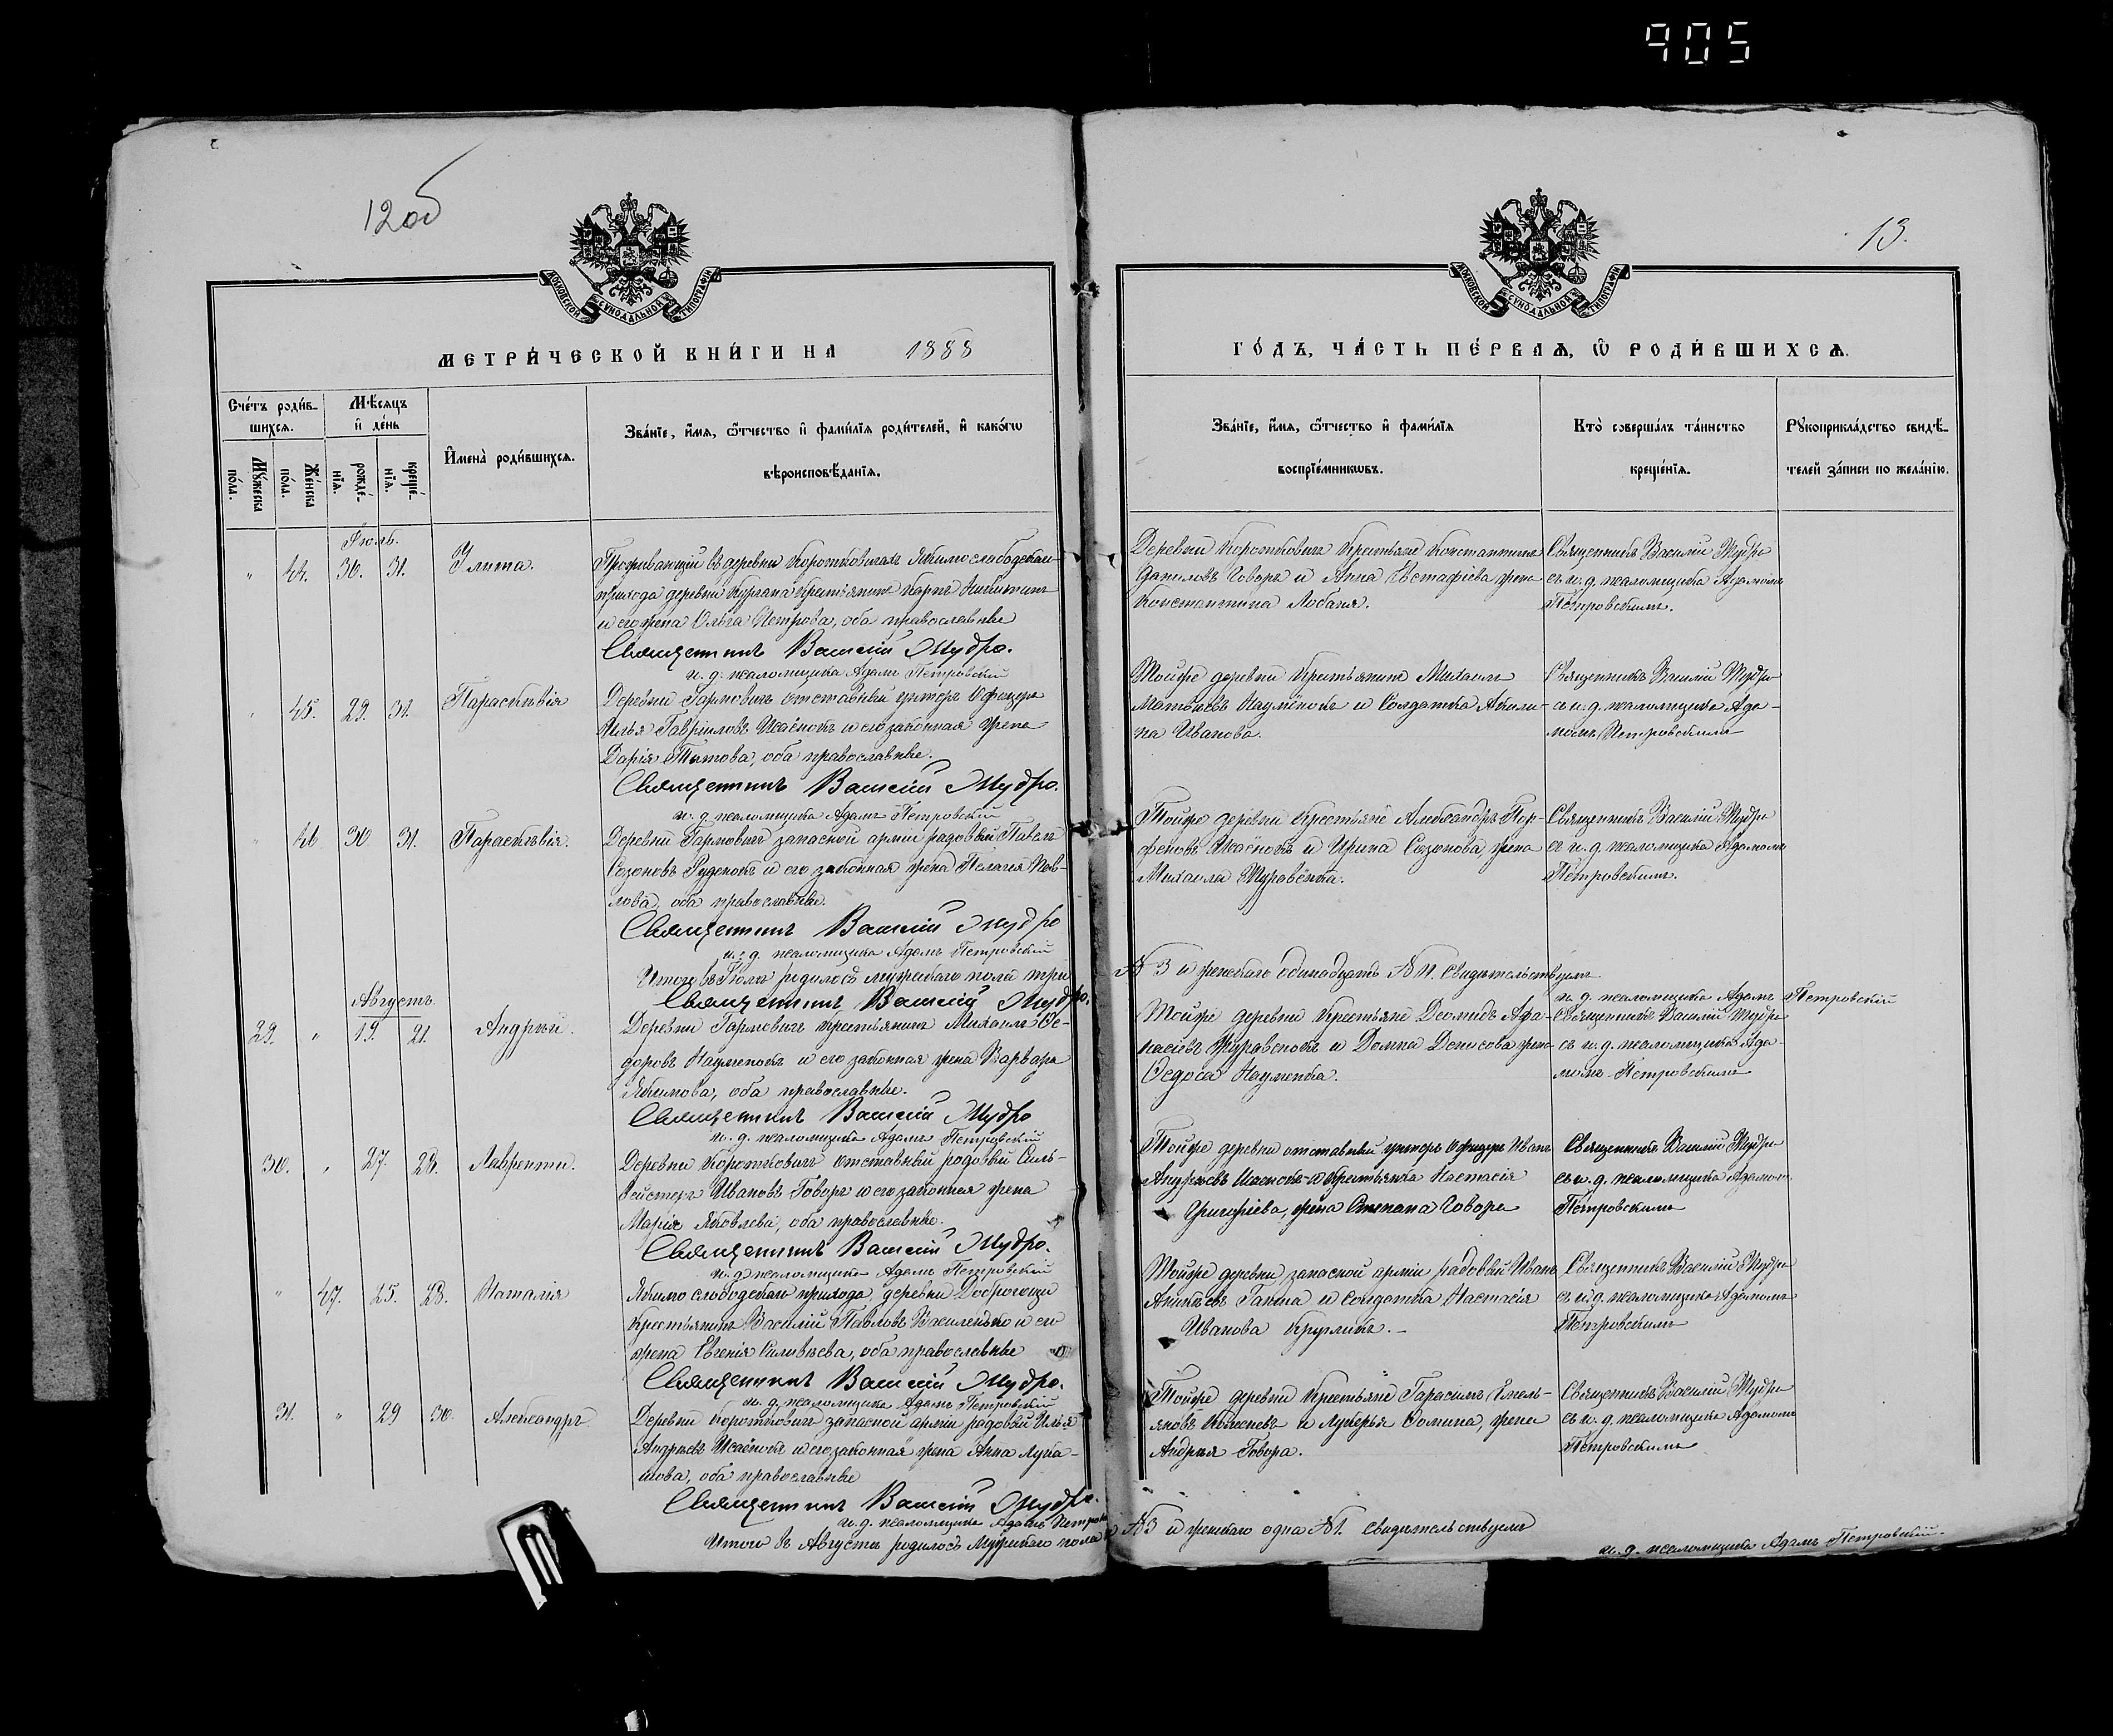 905
12об
13.
МОСКОВСКОЙ СѴНОДАЛЬНОЙ ТИПОГРАФІИ
МОСКОВСКОЙ СѴНОДАЛЬНОЙ ТИПОГРАФІИ
МЕТРИ́ЧЕСКОЙ КНИ́ГИ НА 1888
ГО́ДЪ, ЧА́СТЬ ПЕ́РВАѦ, Ѡ҆ РОДИ́ВШИХСѦ.
Сче́тъ роди́в-
шихсѧ.
Мꙋ́жеска по́ла.
Же́нска по́ла.
Мѣ́сѧцъ
и҆ де́нь
рожде́-
нїѧ.
креще́-
нїѧ.
И҆мена̀ роди́вшихсѧ.
Зва́нїе, и҆́мѧ, ѻ҆́тчество и҆ фами́лїѧ роди́телей, и҆ како́гѡ
вѣроисповѣ́данїѧ.
Зва́нїе, и҆́мѧ, ѻ҆́тчество и҆ фами́лїѧ
воспрїе́мникѡвъ.
Кто̀ соверша́лъ та́инство
креще́нїѧ.
Рꙋкоприкла́дство свидѣ́-
телей за́писи по жела́нїю.
Іюль.
" 44. 30. 31. Улита.
Проживающій въ деревни Коротковичахъ Якимослободскаго
прихода деревни Кургана крестьянинъ Карпъ Никитинъ
и его жена Ольга Петрова, оба православные
Священникъ Василій Мудро.
и. д. псаломщика Адамъ Петровскій
Деревни Коротковичъ крестьяне Константинъ
Даниловъ Говоръ и Анна Евстафіева жена
Константина Лобача.
Священникъ Василій Мудро
съ и. д. псаломщика Адамомъ
Петровскимъ.
" 45. 29. 31. Параскѣвія
Деревни Гармовичъ отставный унтеръ Офицеръ
Илья Гавріиловъ Исаёнокъ и его законная жена
Дарія Титова, оба православные.
Священникъ Василій Мудро.
и. д. псаломщика Адамъ Петровскій
Тойже деревни крестьянинъ Михаилъ
Матвѣевъ Науменокъ и Солдатка Акили-
на Иванова.
Священникъ Василій Мудро
съ и. д. псаломщика Ада-
момъ Петровскимъ
" 46 30 31. Параскѣвія.
Деревни Гармовичъ запасной арміи рядовый Павелъ
Созоновъ Руденокъ и его законная жена Пелагія Пав-
лова, оба православные.
Священникъ Василій Мудро
и. д. псаломщика Адамъ Петровскій
Тойже деревни крестьяне Александръ Пар-
феновъ Исаенокъ и Ирина Созонова, жена
Михаила Журавёнка.
Священникъ Василій Мудро
съ и. д. псаломщика Адамомъ
Петровскимъ.
Итого въ Іюлѣ родилось мужескаго пола три № 3 и женскаго одинадцать № 11. Свидѣтельствуемъ
Священникъ Василій Мудро.
и. д. псаломщика Адамъ Петровскій
Августъ.
29. " 19. 21. Андрей.
Деревни Гармовичъ крестьянинъ Михаилъ Ѳе-
доровъ Науменокъ и его законная жена Варвара
Якимова, оба православные.
Священникъ Василій Мудро
и. д. псаломщика Адамъ Петровскій
Тойже деревни крестьяне Деомидъ Афа-
насіевъ Журавенокъ и Домна Денисова жена
Ѳедоса Науменка.
Священникъ Василій Мудро
съ и. д. псаломщика Ада-
момъ Петровскимъ
30. " 27. 28. Лаврентій.
Деревни Коротковичъ отставный рядовый Силь-
вейстеръ Ивановъ Говоръ и его законная жена
Марія Яковлева, оба православные.
Священникъ Василій Мудро.
и. д. псаломщика Адамъ Петровскій
Тойже деревни отставный унтеръ Офицеръ Иванъ
Андреевъ Исаенокъ и Крестьянка Настасія
Григоріева, жена Степана Говора
Священникъ Василій Мудро
съ и. д. псаломщика Адамомъ
Петровскимъ
" 47. 25. 28. Наталія
Якимослободскаго прихода, деревни Доброгощи
Крестьянинъ Василій Павловъ Василенько и его
жена Евгенія Силивѣева, оба православные
Священникъ Василій Мудро.
и. д. псаломщика Адамъ Петровскій
Тойже деревни, запасной арміи рядовый Иванъ
Аникѣевъ Гапша и солдатка Настасія
Иванова Круглякъ.
Священникъ Василій Мудро
съ и. д. псаломщика Адамомъ
Петровскимъ
31. " 29 30. Александръ
Деревни Коротковичъ запасной арміи рядовый Илья
Андреевъ Исаёнокъ и его законная жена Анна Лука-
шова, оба православные
Священникъ Василій Мудро.
и. д. псаломщика Адамъ Петровскій
Тойже деревни Крестьяне Гарасимъ Емель-
яновъ и Лукерья Ѳомина, жена
Андрея Говора.
Священникъ Василій Мудро
съ и. д. псаломщика Адамомъ
Петровскимъ
Итого въ Августѣ родилось Мужескаго пола № 3 и женскаго одна № 1. Свидѣтельствуемъ
и. д. псаломщика Адамъ Петровскій.